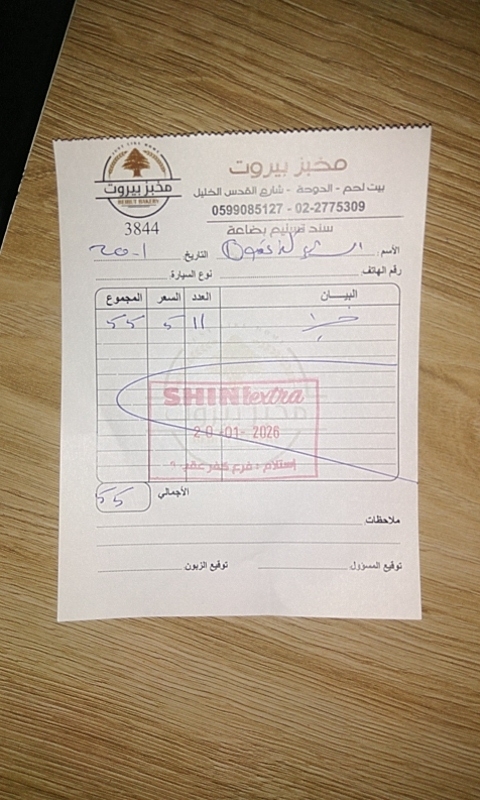 مخبز بيروت
BEIRUT BAKERY
3844
مخبز بيروت
بيت لحم - الدوحة - شارع القدس الخليل
0599085127 - 02-2775309
سند تسليم بضاعة
الأسم:
التاريخ 20-1
رقم الهاتف:
نوع السيارة:
البيــــان العدد السعر المجموع
خبز 11 5 55
SHINI extra
20-01-2026
إستلام : فرع كفر عقب
الأجمالي 55
ملاحظات:
توقيع المسؤول توقيع الزبون